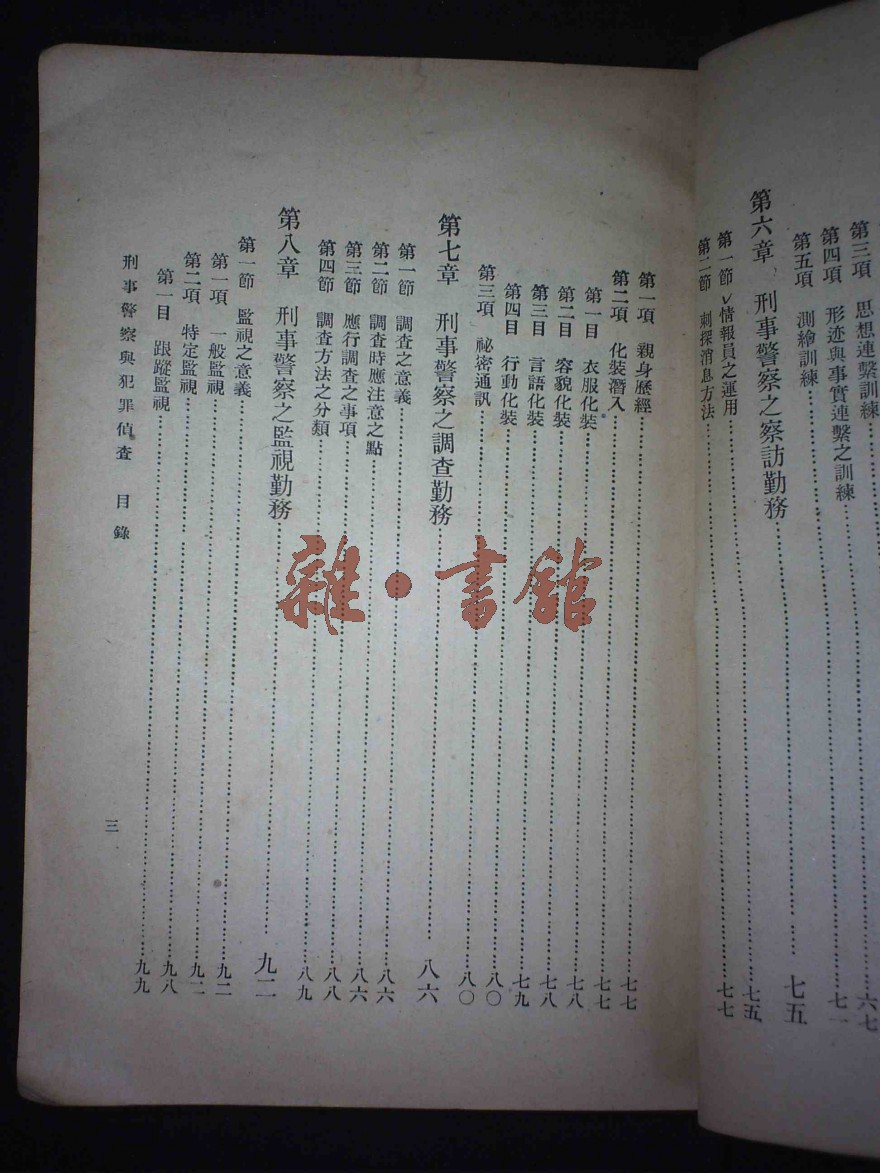 第三項 思想連繫訓練 六七
第四項 形迹與事實連繫之訓練 七一
第五項 測繪訓練
第六章 刑事警察之察訪勤務 七五
第一節 情報員之運用 七五
第二節 刺探消息方法 七七
第一項 親身歷經 七七
第二項 化裝潛入 七七
第一目 衣服化裝 七八
第二目 容貌化裝 七八
第三目 言語化裝 七九
第四目 行動化裝 八〇
第三項 祕密通訊 八〇
第七章 刑事警察之調查勤務 八六
第一節 調查之意義 八六
第二節 調查時應注意之點 八六
第三節 應行調查之事項 八八
第四節 調查方法之分類 八九
第八章 刑事警察之監視勤務 九二
第一節 監視之意義 九二
第一項 一般監視 九二
第二項 特定監視 九八
第一目 跟蹤監視 九九
刑事警察與犯罪偵查 目錄
三
雜·書館